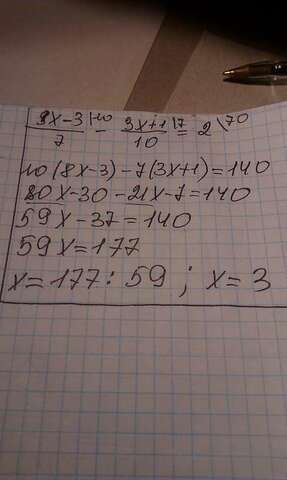 8x-3/7 \10 - 3x+1/10 \7 = 2 \70
10(8x-3)-7(3x+1)=140
80x-30-21x-7=140
59x-37=140
59x=177
x=177:59; x=3